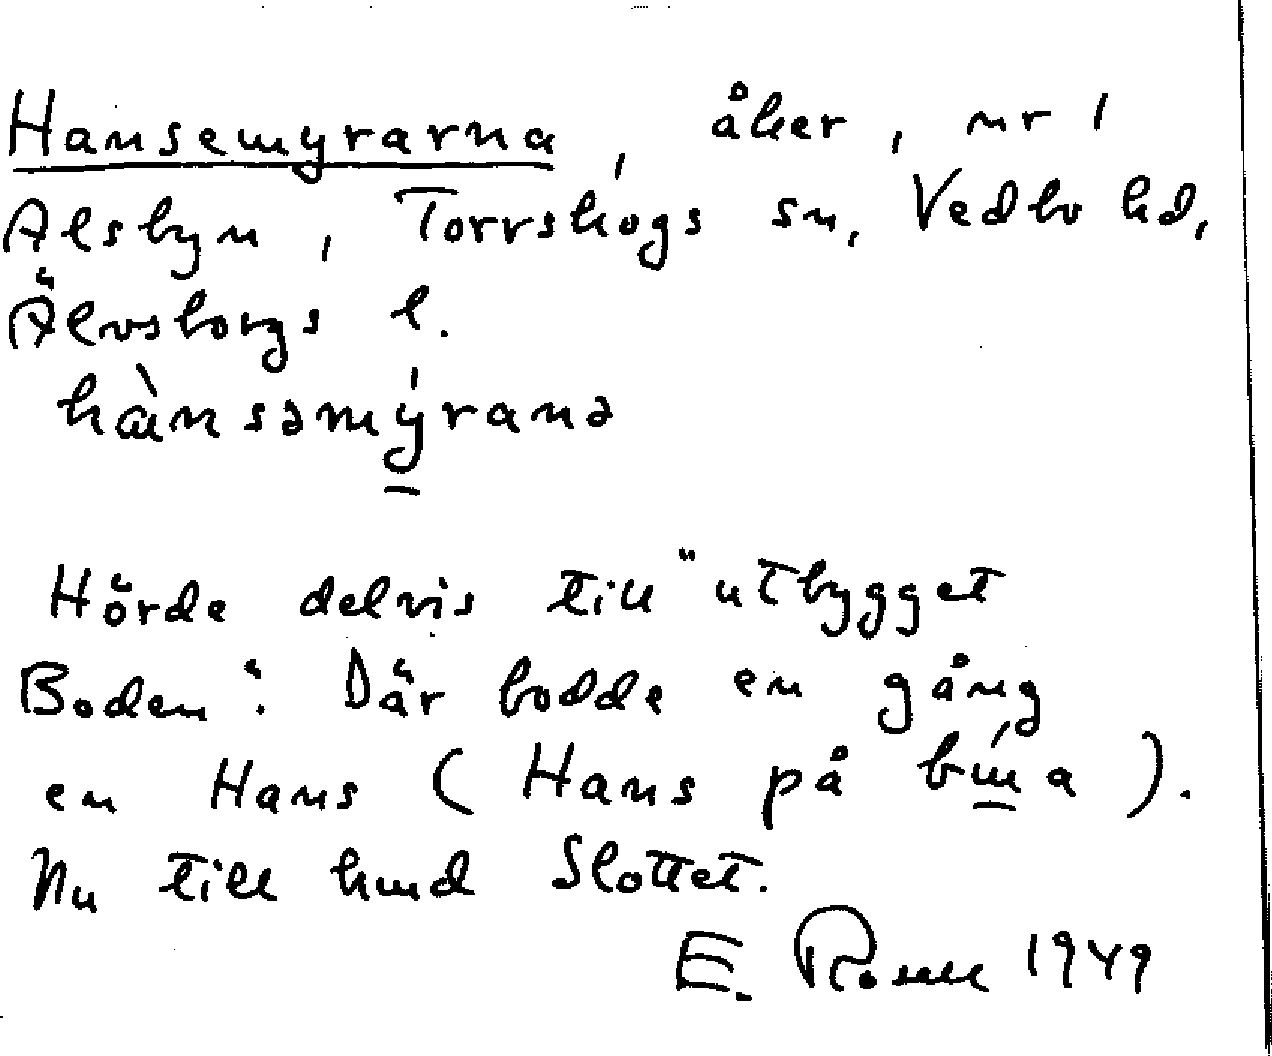 Hansemyrarna, åker, nr 1
Alsbyn, Torrskogs sn, Vedbo hd,
Älvsborgs l.
hànsəmýranə
Hörde delvis till "utbygget
Boden". Där bodde en gång
en Hans (Hans på
Nu till hmd Slottet.
E. Rosell 1949